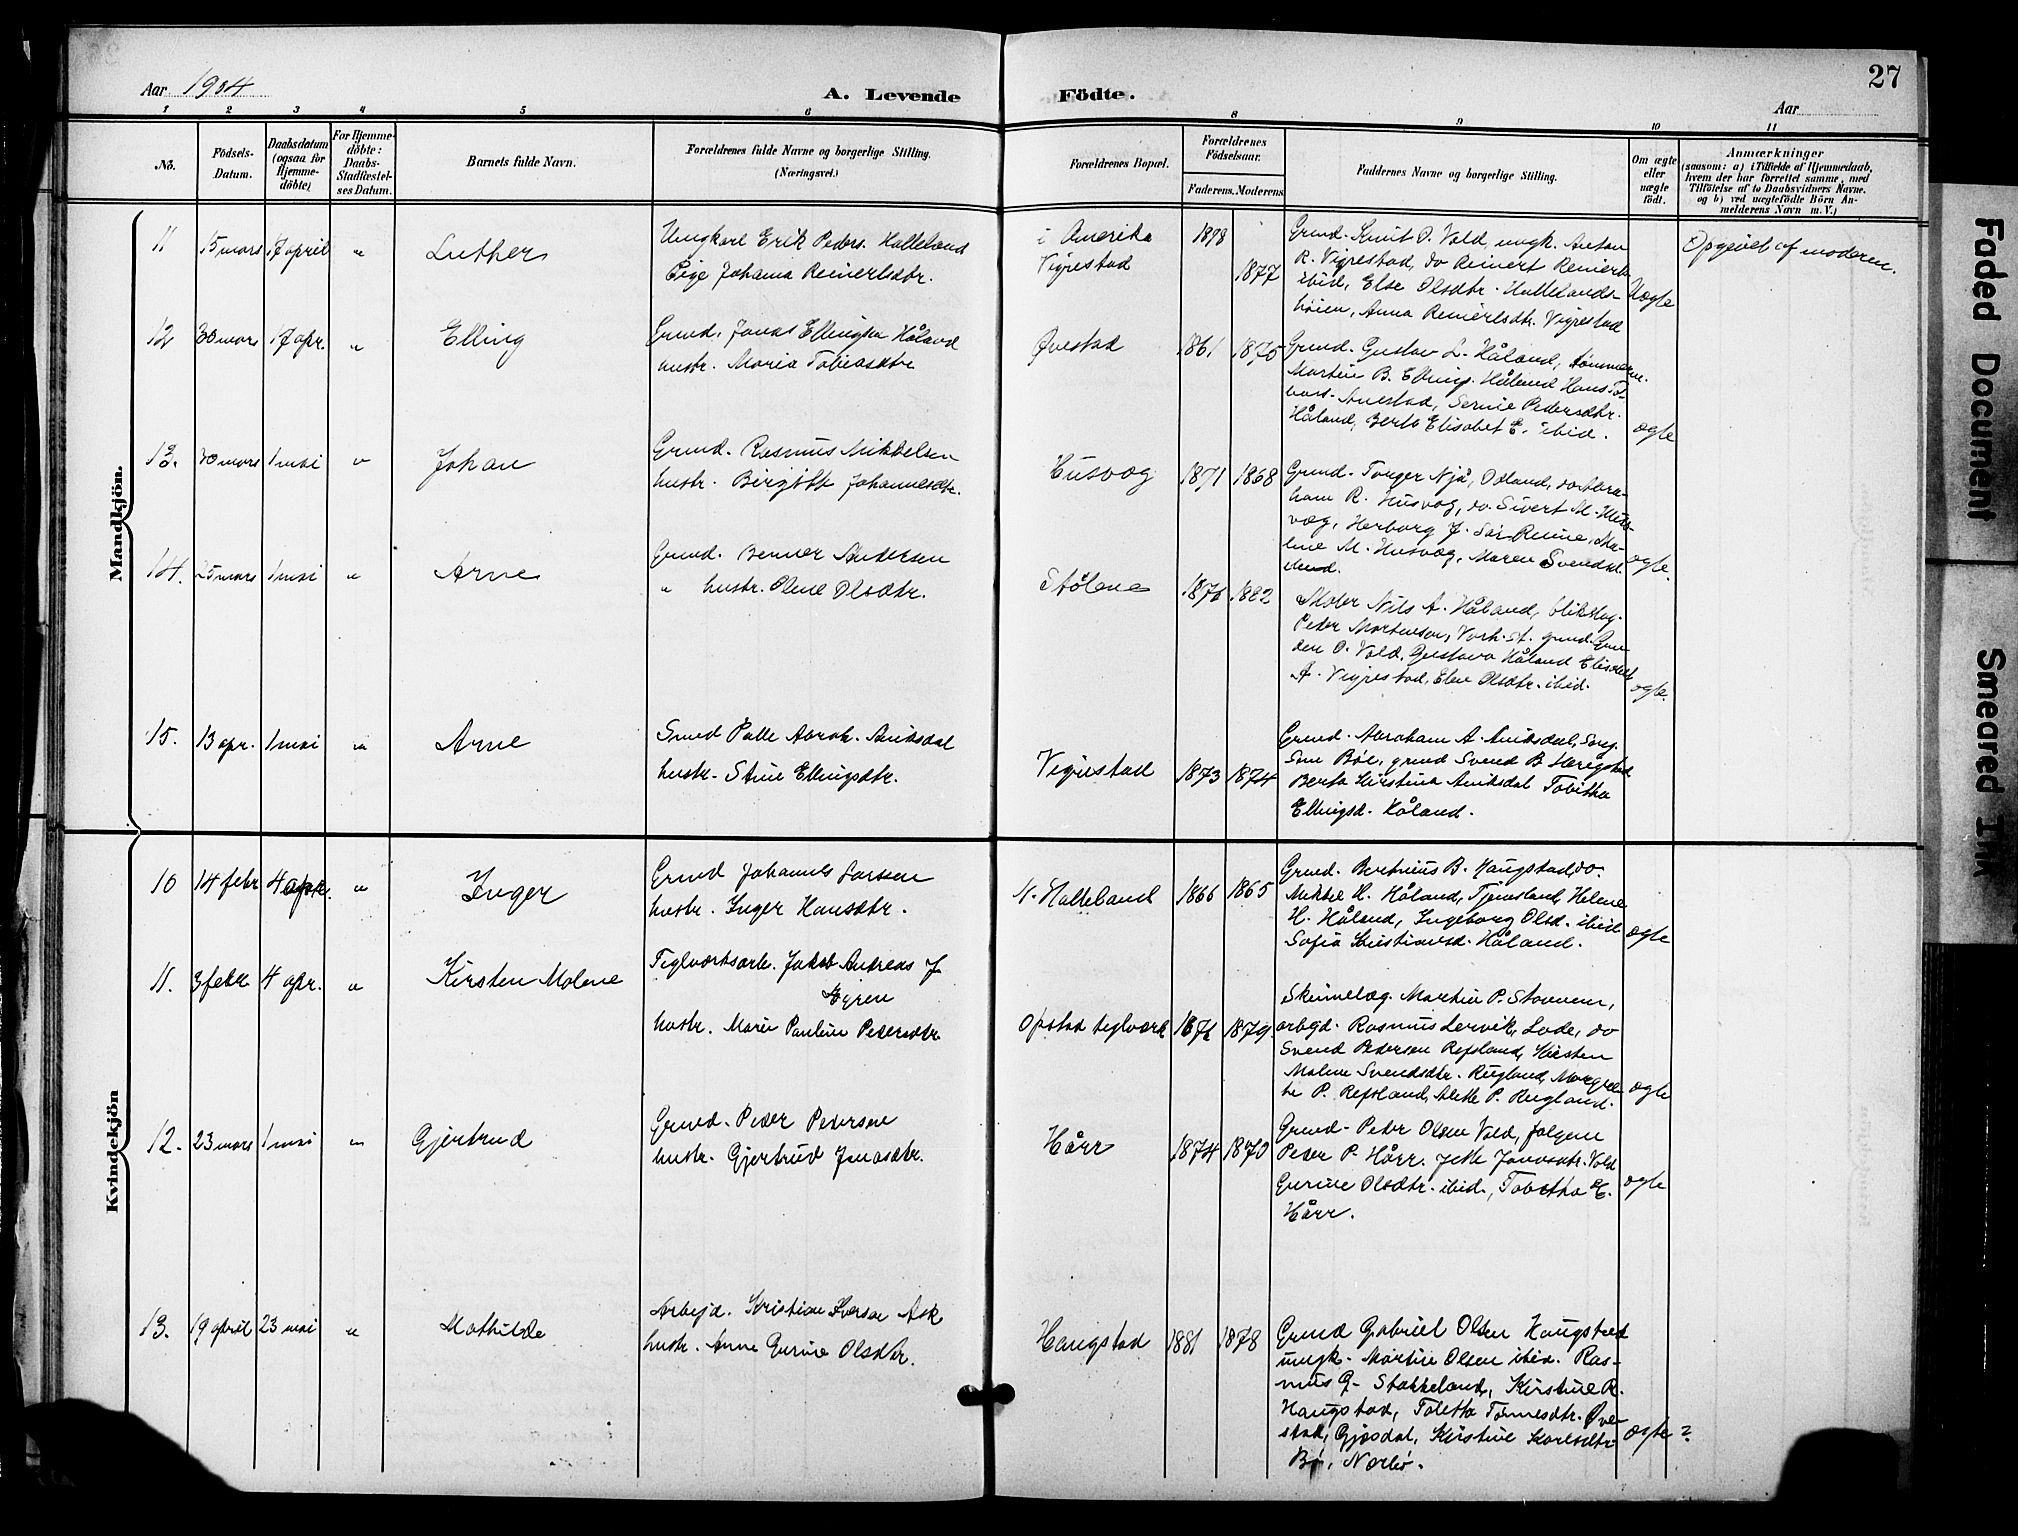 27
Aar 1904
A. Levende Födte.
Aar
1 2 3 4 5 6 8 9 10 11
No.
Födsels-
Datum.
Daabsdatum
(ogsaa for
Hjemme-
döbte)
For Hjemme-
döbte:
Daabs-
Stadfæstel-
ses Datum.
Barnets fulde Navn.
Forældrenes fulde Navne og borgerlige Stilling.
(Næringsvei.)
Forældrenes Bopæl.
Forældrenes
Födselsaar.
Faderens. Moderens.
Faddernes Navne og borgerlige Stilling.
Om ægte
eller
uægte
født.
Anmærkninger
(saasom: a) i Tilfælde af Hjemmedaab,
hvem der har forrettet samme, med
Tilföielse af to Daabsvidners Navne.
og b) ved uægtefödte Börn An-
melderens Navn m. V.)
Mandkjön.
11 15 mars 17 april " Luther
Ungkarl Erik Peders. Halleland
Pige Johanna Reinertsdtr.
i Amerika
Vigrestad
1878
1877
Grund. Knut O. Vold, ungk. Anton
R. Vigrestad, do Reinert Reinerts.
ibid, Else Olsdtr. Hallelands-
høien, Anna Reinertsdtr. Vigrestad
Uægte
Opgivet af moderen.
12 30 mars 17 apr. " Elling
Grund. Jonas Ellingsen Håland
hustr. Maria Tobiasdtr
Øvestad
1861 1875
Grund. Gustav L. Håland, tømmerm.
Martin B. Elling. Håland Hans T.
Anestad, Serine Pedersdtr.
Håland, Berta Elisabet E. ibid.
ægte
13. 30 mars 1 mai " Johan
Grund. Rasmus Mikkelsen
hustr. Birgitte Johannesdtr.
Husvæg
1871 1868
Grund. Tonger Njå, Odland, do Abra-
ham R. Husvæg, do. Sivert M. Hus-
væg, Herborg J. Sør Reime, Ma-
line M. Husvæg, Maren Svendsd.
ibid.
ægte.
14. 25 mars 1 mai " Arne
Grund. Berner Andersen
" hustr. Oline Olsdtr.
Stølene
1876 1882
Maler Nils A. Håland, blikslag.
Peder Mortensen, Varh. st. grund. Gun
der O. Vold, Gustava Håland Elisabet
A. Vigrestad, Elen Olsdtr. ibid.
ægte.
15. 13 apr. 1 mai " Arne
Smed Palle Abrah. Aniksdal
hustr. Stine Ellingsdtr.
Vigrestad
1873 1874
Grund. Abraham A. Aniksdal, Sørg.
Sme Bøe, grund Svend B Hærigstad
Berta Kirstina Aniksdal Tabitha
Ellingsd. Håland.
Kvindekjön
10 14 febr 4 apr. " Inger
Grund Johannes Larsen
hustr. Inger Hansdtr.
N. Halleland
1866 1865
Grund. Bertinius B. Haugstad, do.
Mikkel H. Håland, Tjemsland, Helene
H. Håland, Ingeborg Olsd. ibid
Sofia Kristiansd. Håland.
ægte
11. 3 febr 4 apr. " Kirsten Malene
Teglværksarb. Jakob Andreas J
Gyren
hustr. Marie Pauline Pedersdtr
Opstad teglværk
1872 1879.
Skinnelæg. Martin P. Stavnem,
arbejd. Rasmus Lervik, Lode, do
Svend Pedersen Refsland, Kirsten
Malene Svendsdtr. Rugland, Margre
te P. Refsland, Alette P. Rugland.
ægte
12. 23 mars 1 mai " Gjertrud
Grund. Peder Pedersen
hustr. Gjertrud Jonasdtr.
Hårr
1874 1870
Grund. Peder Olsen Vold, følgem
Peder P. Hårr. Jette Jonasdtr. Vold
Gurine Olsdtr. ibid., Tabitha E.
Hårr.
ægte
13. 19 april 23 mai " Mathilde
Arbejd. Kristian Iversen Ask
hustr. Anne Gurine Olsdtr.
Haugstad
1881 1878
Grund Gabriel Olsen Haugstad
ungk. Martin Olsen ibid. Ras-
mus G. Stokkeland, Kirstine R.
Haugstad, Taletta Tønnesdtr. Øve-
stad, Gjesdal, Kirstine Karlsdtr
Bø, Nærbø.
ægte ?
Faded Document
Smeared Ink